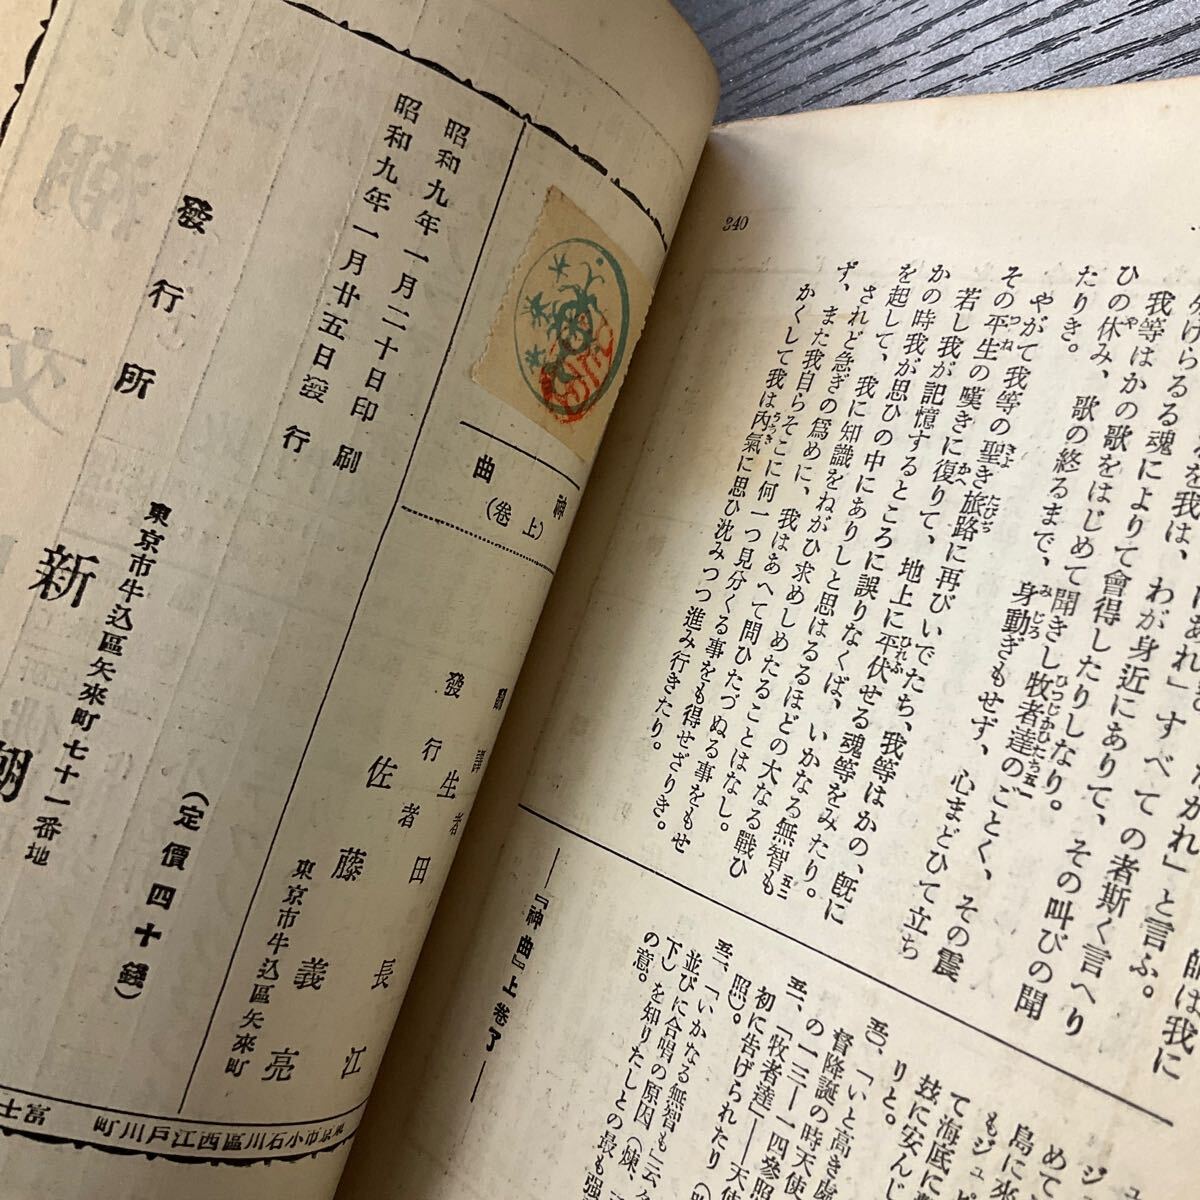 師は我に
たかれ」と言ふ。
にあれ」すべての者斯く言へり
を我は、わが身近にありて、その叫びの聞
けらるる魂によりて會得したりしなり。
我等はかの歌をはじめて聞きし牧者達五一のごとく、その震
ひの休み、歌の終るまで、身動きもせず、心まどひて立ち
たりき。
やがて我等の聖き旅路に再びいでたち、我等はかの、既に
その平生の嘆きに復りて、地上に平伏せる魂等をみたり。
若し我が記憶するところに誤りなくば、いかなる無智も五二
かの時我が思ひの中にありしと思はるるほどの大なる戰ひ
を起して、我に知識をねがひ求めしめたることはなし。
されど急ぎの爲めに、我はあへて問ひたづぬる事をもせ
ず、また我自らそこに何一つ見分くる事をも得せざりき。
かくして我は内氣に思ひ沈みつつ進み行きたり。
340
めて
島に來
もジュピ
て海底に
玆に安んじ
りと。
五〇、「いと高き處
督降誕の時天使
の一三―一四參照
五一、「牧者達」――天使
初に告げられたり
照)。
五二、「いかなる無智も」云々
並びに合唱の原因(煉、
下)を知りたしとの最も强
の意。
――『神曲』上卷了――
神曲
(上卷)
昭和九年一月二十日印刷
昭和九年一月廿五日發行
飜譯者
生田長江
發行者
佐藤義亮
東京市牛込區矢來町
(定價四十錢)
發行所
東京市牛込區矢來町七十一番地
新潮
東京市小石川區西江戸川町 富士